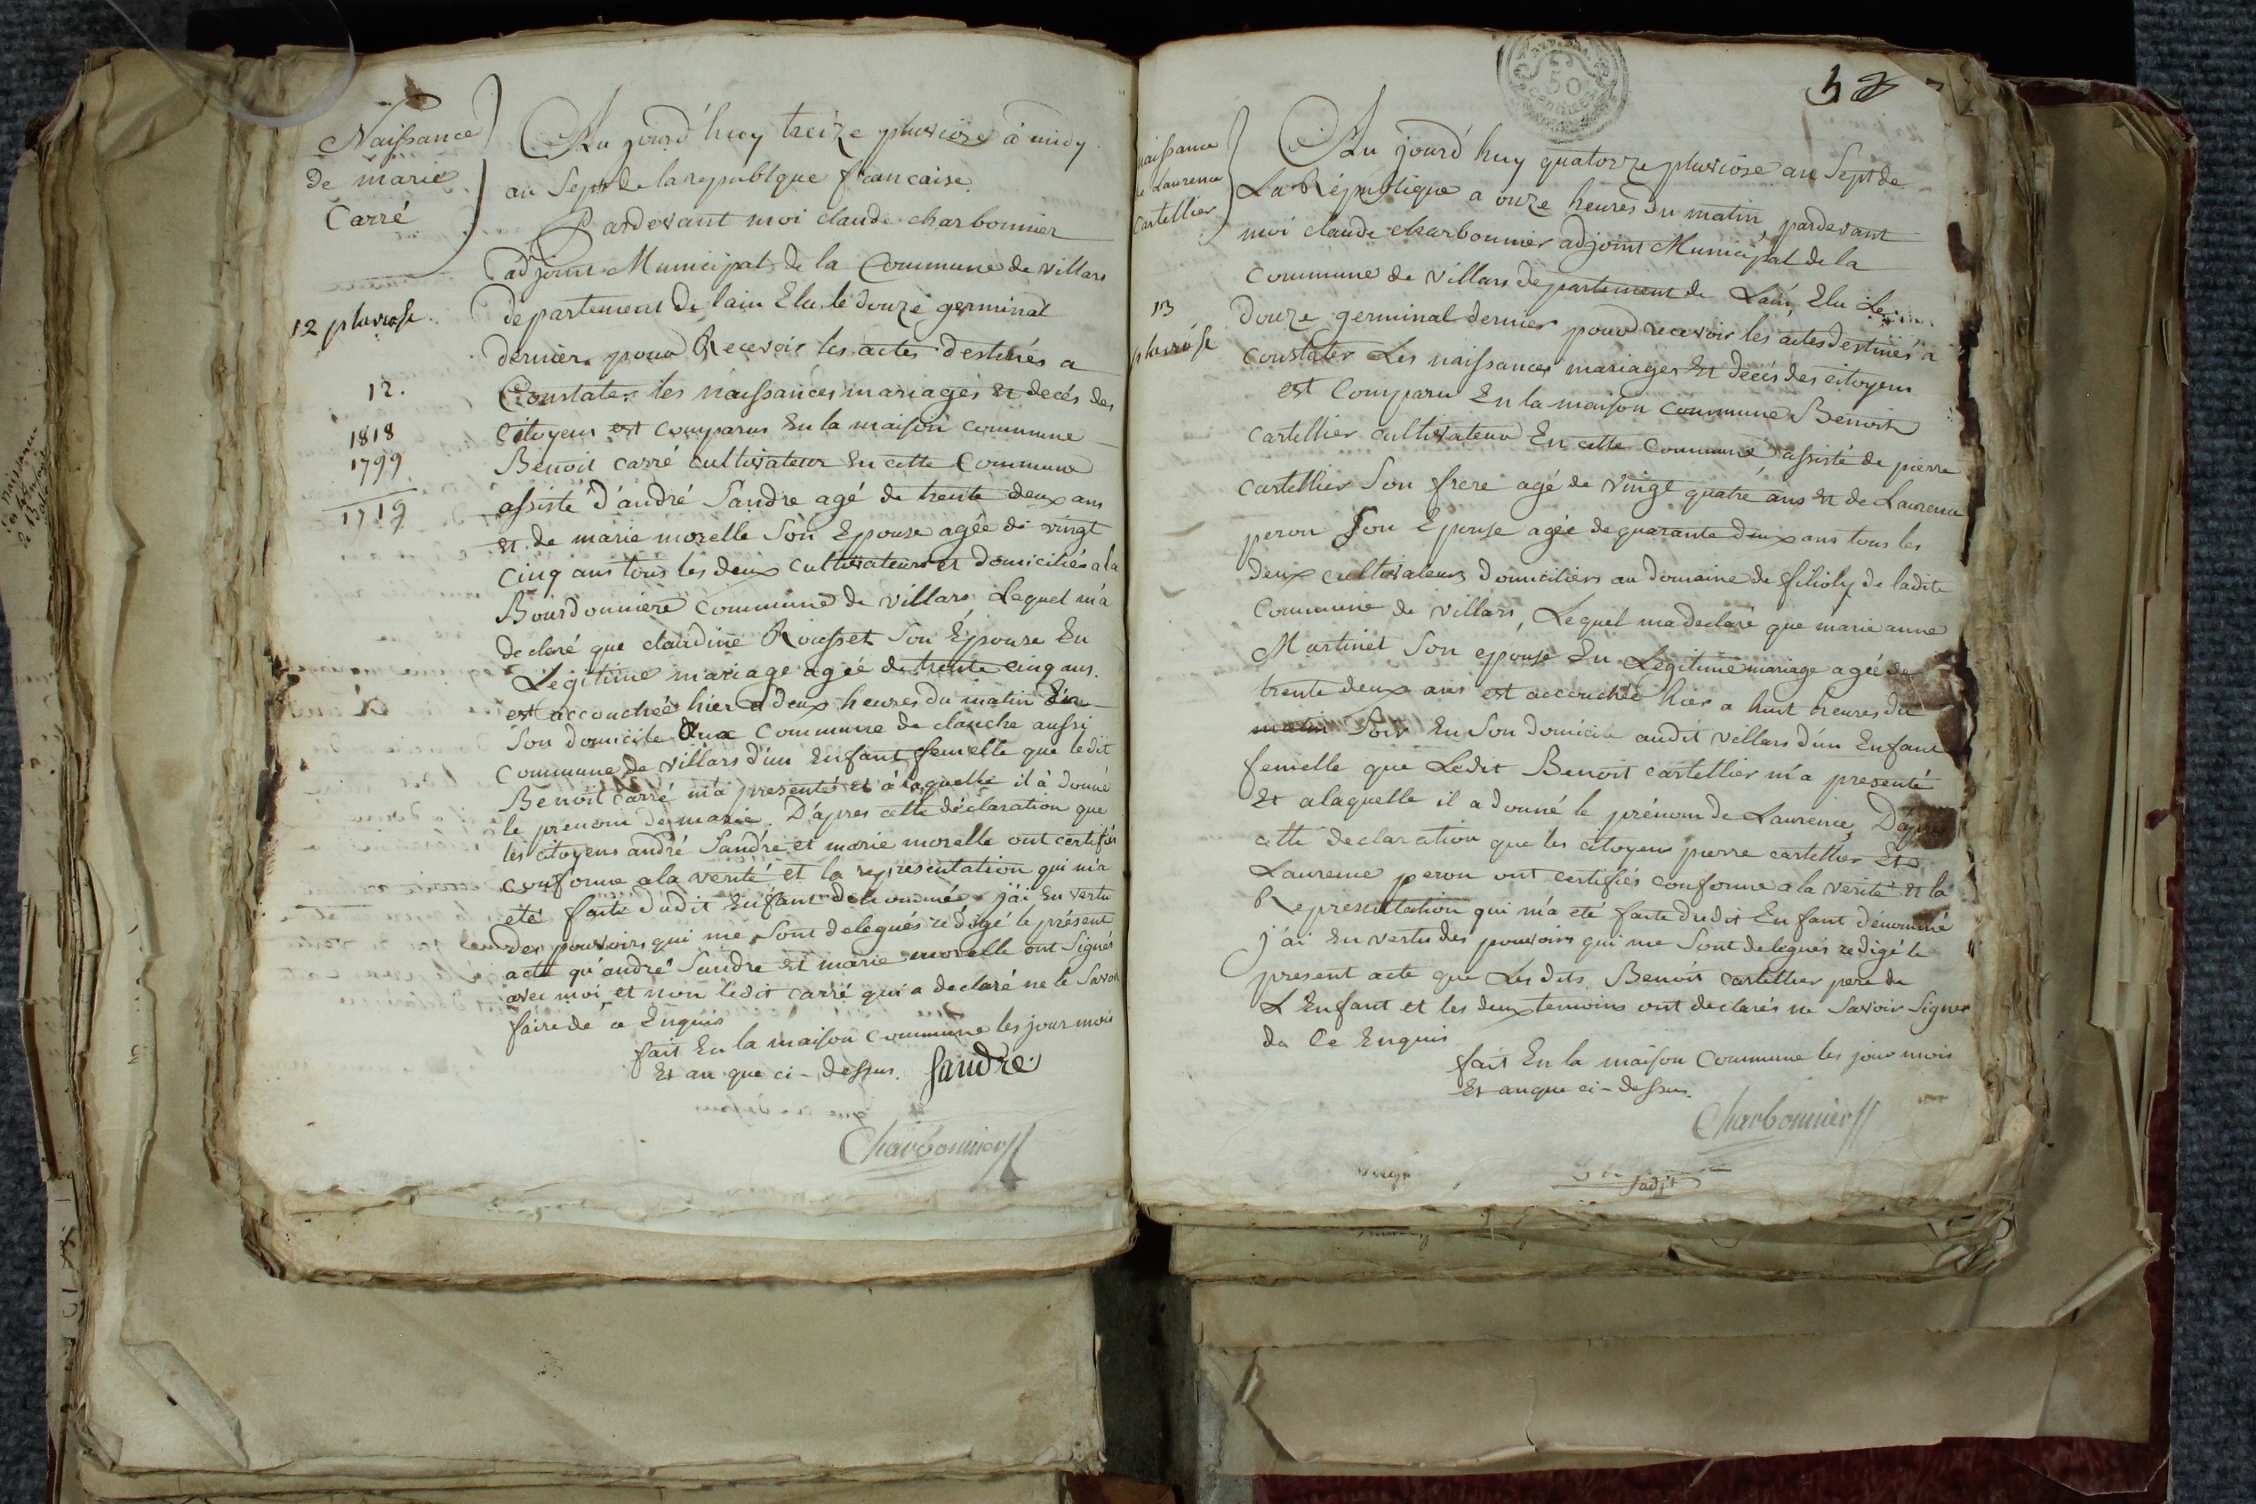 Naissance
de marie
Carré
12 pluviose
12.
1818
1799
1719
Au jourd'huy treize pluviôse à midy
an Sept de la republque francaise
Pardevant moi claude charbonnier
adjoint Municipal de la Commune de villars
departement de lain Elu le douze germinal
dernier pour Recevoir les actes destinés a
Constater les naissances mariages et decés des
Citoyens est comparus En la maison commune
Benoit carré cultivateur En cette Commune
assisté d'andré Sandre agé de trente deux ans
et de marie morelle Son Epouse agée de vingt
Cinq ans tous les deux cultivateurs et domiciliés a la
Bourdonniere Commune de villars Lequel m'a
declaré que claudine Rousset Son Epouse En
Legitime mariage agée de trente cinq ans.
est accouchée hier a deux heures du matin En
Son domicile commune de clanche aussi
Commune de villars d'un Enfant femelle que ledit
Benoit carré m'a presenté et à laquelle il à donné
le prenom de marie. D'après cette déclaration que
les citoyens andré Sandré et marie morelle ont certifiés
conforme a la verité et la representation qui m'a
eté faite dudit Enfant denommée j'ai En vertu
des pouvoirs qui me Sont delegués redigé le présent
acte qu'andré Sandre et marie morelle ont Signés
avec moi et non ledit carré qui a declaré ne le Savoir
faire de ce Enquis
fait En la maison Commune les jour mois
Et an que ci-dessus. Sandre
Charbonnier
50
naissance
de Laurence
Cartellier
13
pluviôse
Au jourd'huy quatorze pluviose an Sept de
La République a onze heures du matin, pardevant
moi claude charbonnier adjoint Municipal de la
Commune de villars departement de Lain, Elu Le
douze germinal dernier pour recevoir les actes destinés a
constater Les naissances mariages Et decés des citoyens
est Comparu En la maison commune Benoit
Cartellier cultivateur En cette Commune assisté de pierre
Cartellier Son frere agé de vingt quatre ans et de Laurence
peron Son Epouse agée de quarante deux ans tous les
deux cultivateurs domiciliers au domaine de filioly de ladite
Commune de villars, Lequel ma declaré que marie anne
Martinet Son epouse En Legitime mariage agée de
trente deux ans est accouchée hier a huit heures du
matin Soir En Son domicile audit villars d'un Enfant
femelle que Ledit Benoit cartellier m'a presenté
Et alaquelle il a donné le prénom de Laurence, D'après
cette declaration que les citoyens pierre cartellier Et
Laurence peron ont certifiés conforme a la verité et la
Representation qui m'a eté faite dudit Enfant dénommé
j'ai En vertu des pouvoirs qui me Sont delegués redigé le
present acte que Les dits Benoit cartellier pere de
L'Enfant et les deux temoins ont declarés ne Savoir Signer
de Ce Enquis
fait En la maison Commune les jour mois
Et an que ci-dessus.
Charbonnier